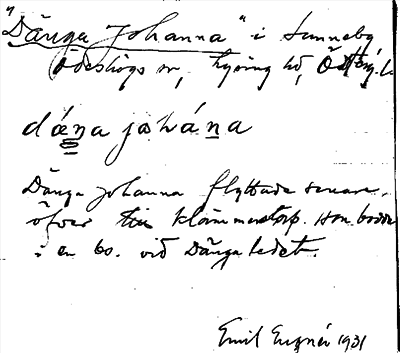 "Dänga Johanna" i Sunneby
Ödeshögs sn, Lysing hd, Östergl.
dáŋa johána
Dänga Johanna flyttade senare
öfver till Klämmestorp. Hon bodde
i en bs. vid Dänga ledet.
Emil 1931